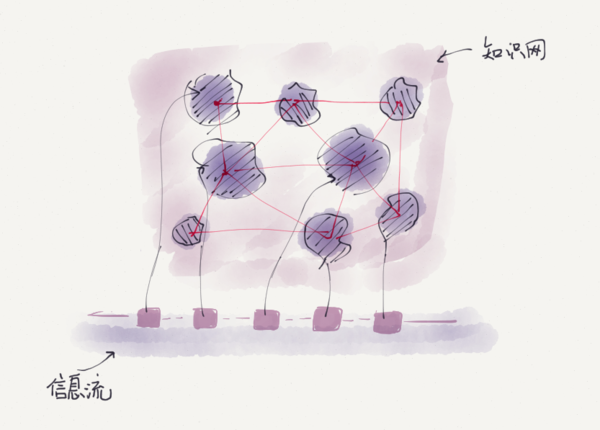 知识网
信息流